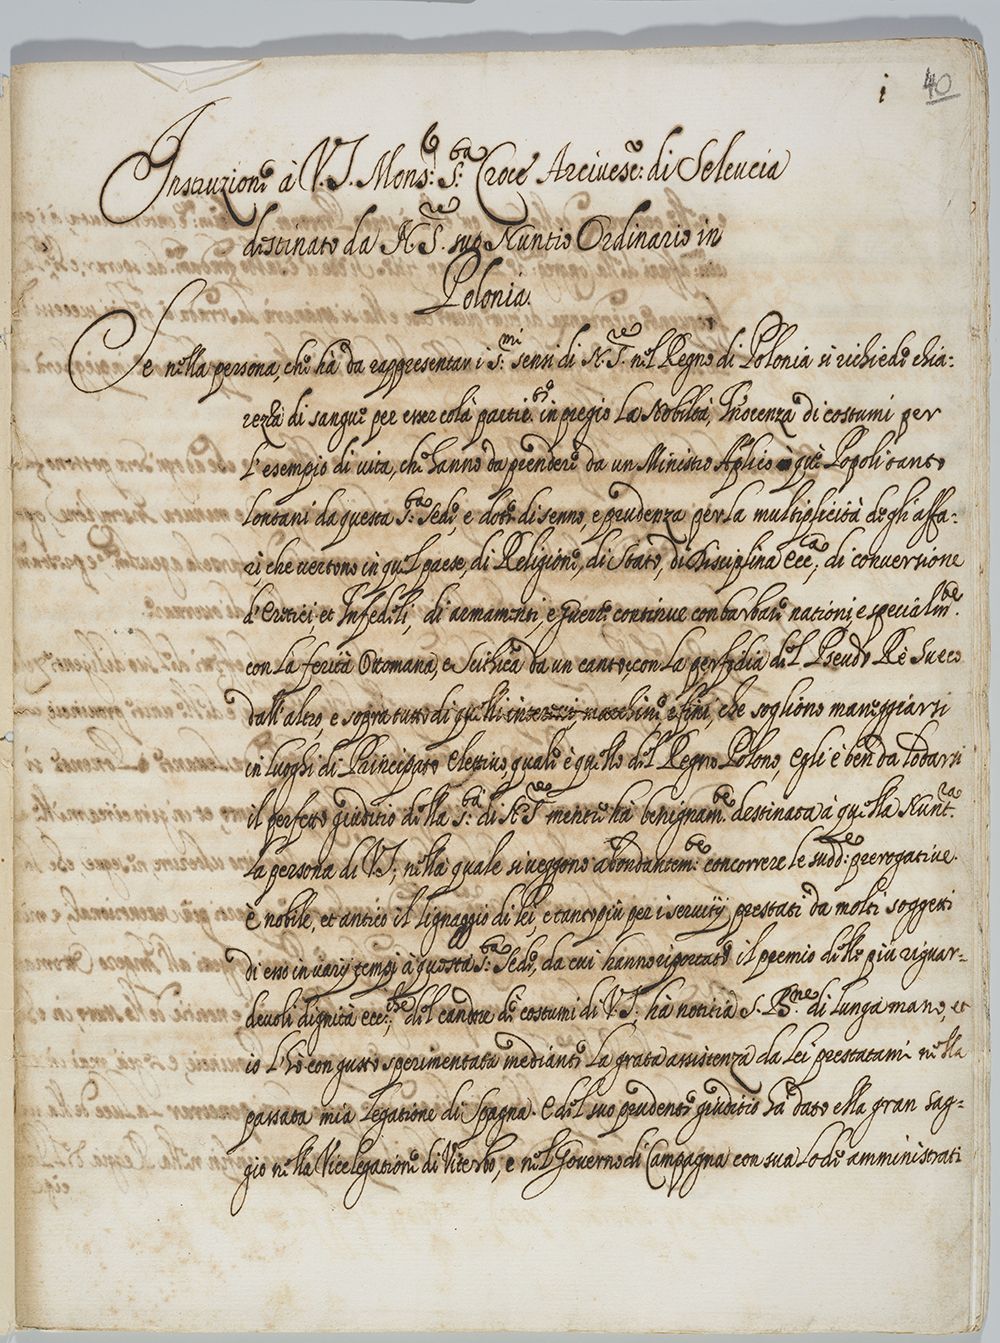 i 40
Instruzione à V. S. Mons:r S:ta Croce Arcivesc:o di Seleucia
destinato da N. S.re suo Nuntio Ordinario in
Polonia.
Se nella persona, che hà da rappresentar i S:mi sensi di N. S.re nel Regno di Polonia si richiede chia:
rezza di sangue per esser colà in pregio la Nobiltà, Inocenza di costumi per
l'esempio di vita, che hanno da prendere da un Ministro Aplico Popoli tanto
lontani da questa S:ta Sede, e dote di senno, e prudenza per la multiplicità degli affa:
ri, che vertono in quel paese, di Religione, di Stato, di Disciplina Ecc:ca, di conversione
d'Eretici, et Infedeli, di armamenti, e guerre continue con barbare nationi, e specialm:te
con la ferità Ottomana, e Scithica da un canto, e con la perfidia del Pseudo Rè Sueco
dall'altro, e sopra tutto di quelli che sogliono maneggiarsi
in luoghi di Principato elettivo, quale è quello del Regno Polono, egli è ben da lodarsi
il perfetto giuditio della S:tà di N. S.re mentre hà benignam:te destinata à quella Nunt:ra
la persona di V. S., nella quale si veggono abondantem:te concorrere le sudd:e prerogative.
è nobile, et antico il lignaggio di lei, e tanto più per i servitij prestati da molti soggetti
di esso in varij tempi à questa S:ta Sede, da cui hanno riportato il premio delle più riguar-
devoli dignità ecc:che del candore de costumi di V. S., hà notitia S. B:ne di lunga mano, et
io l'hò con gusto sperimentata mediante la grata assistenza da lei prestatami nella
passata mia legatione di Spagna. E del suo prudente giuditio hà dato ella gran sag-
gio nella Vicelegatione di Viterbo, e nel Governo di Campagna con sua lode amministrati